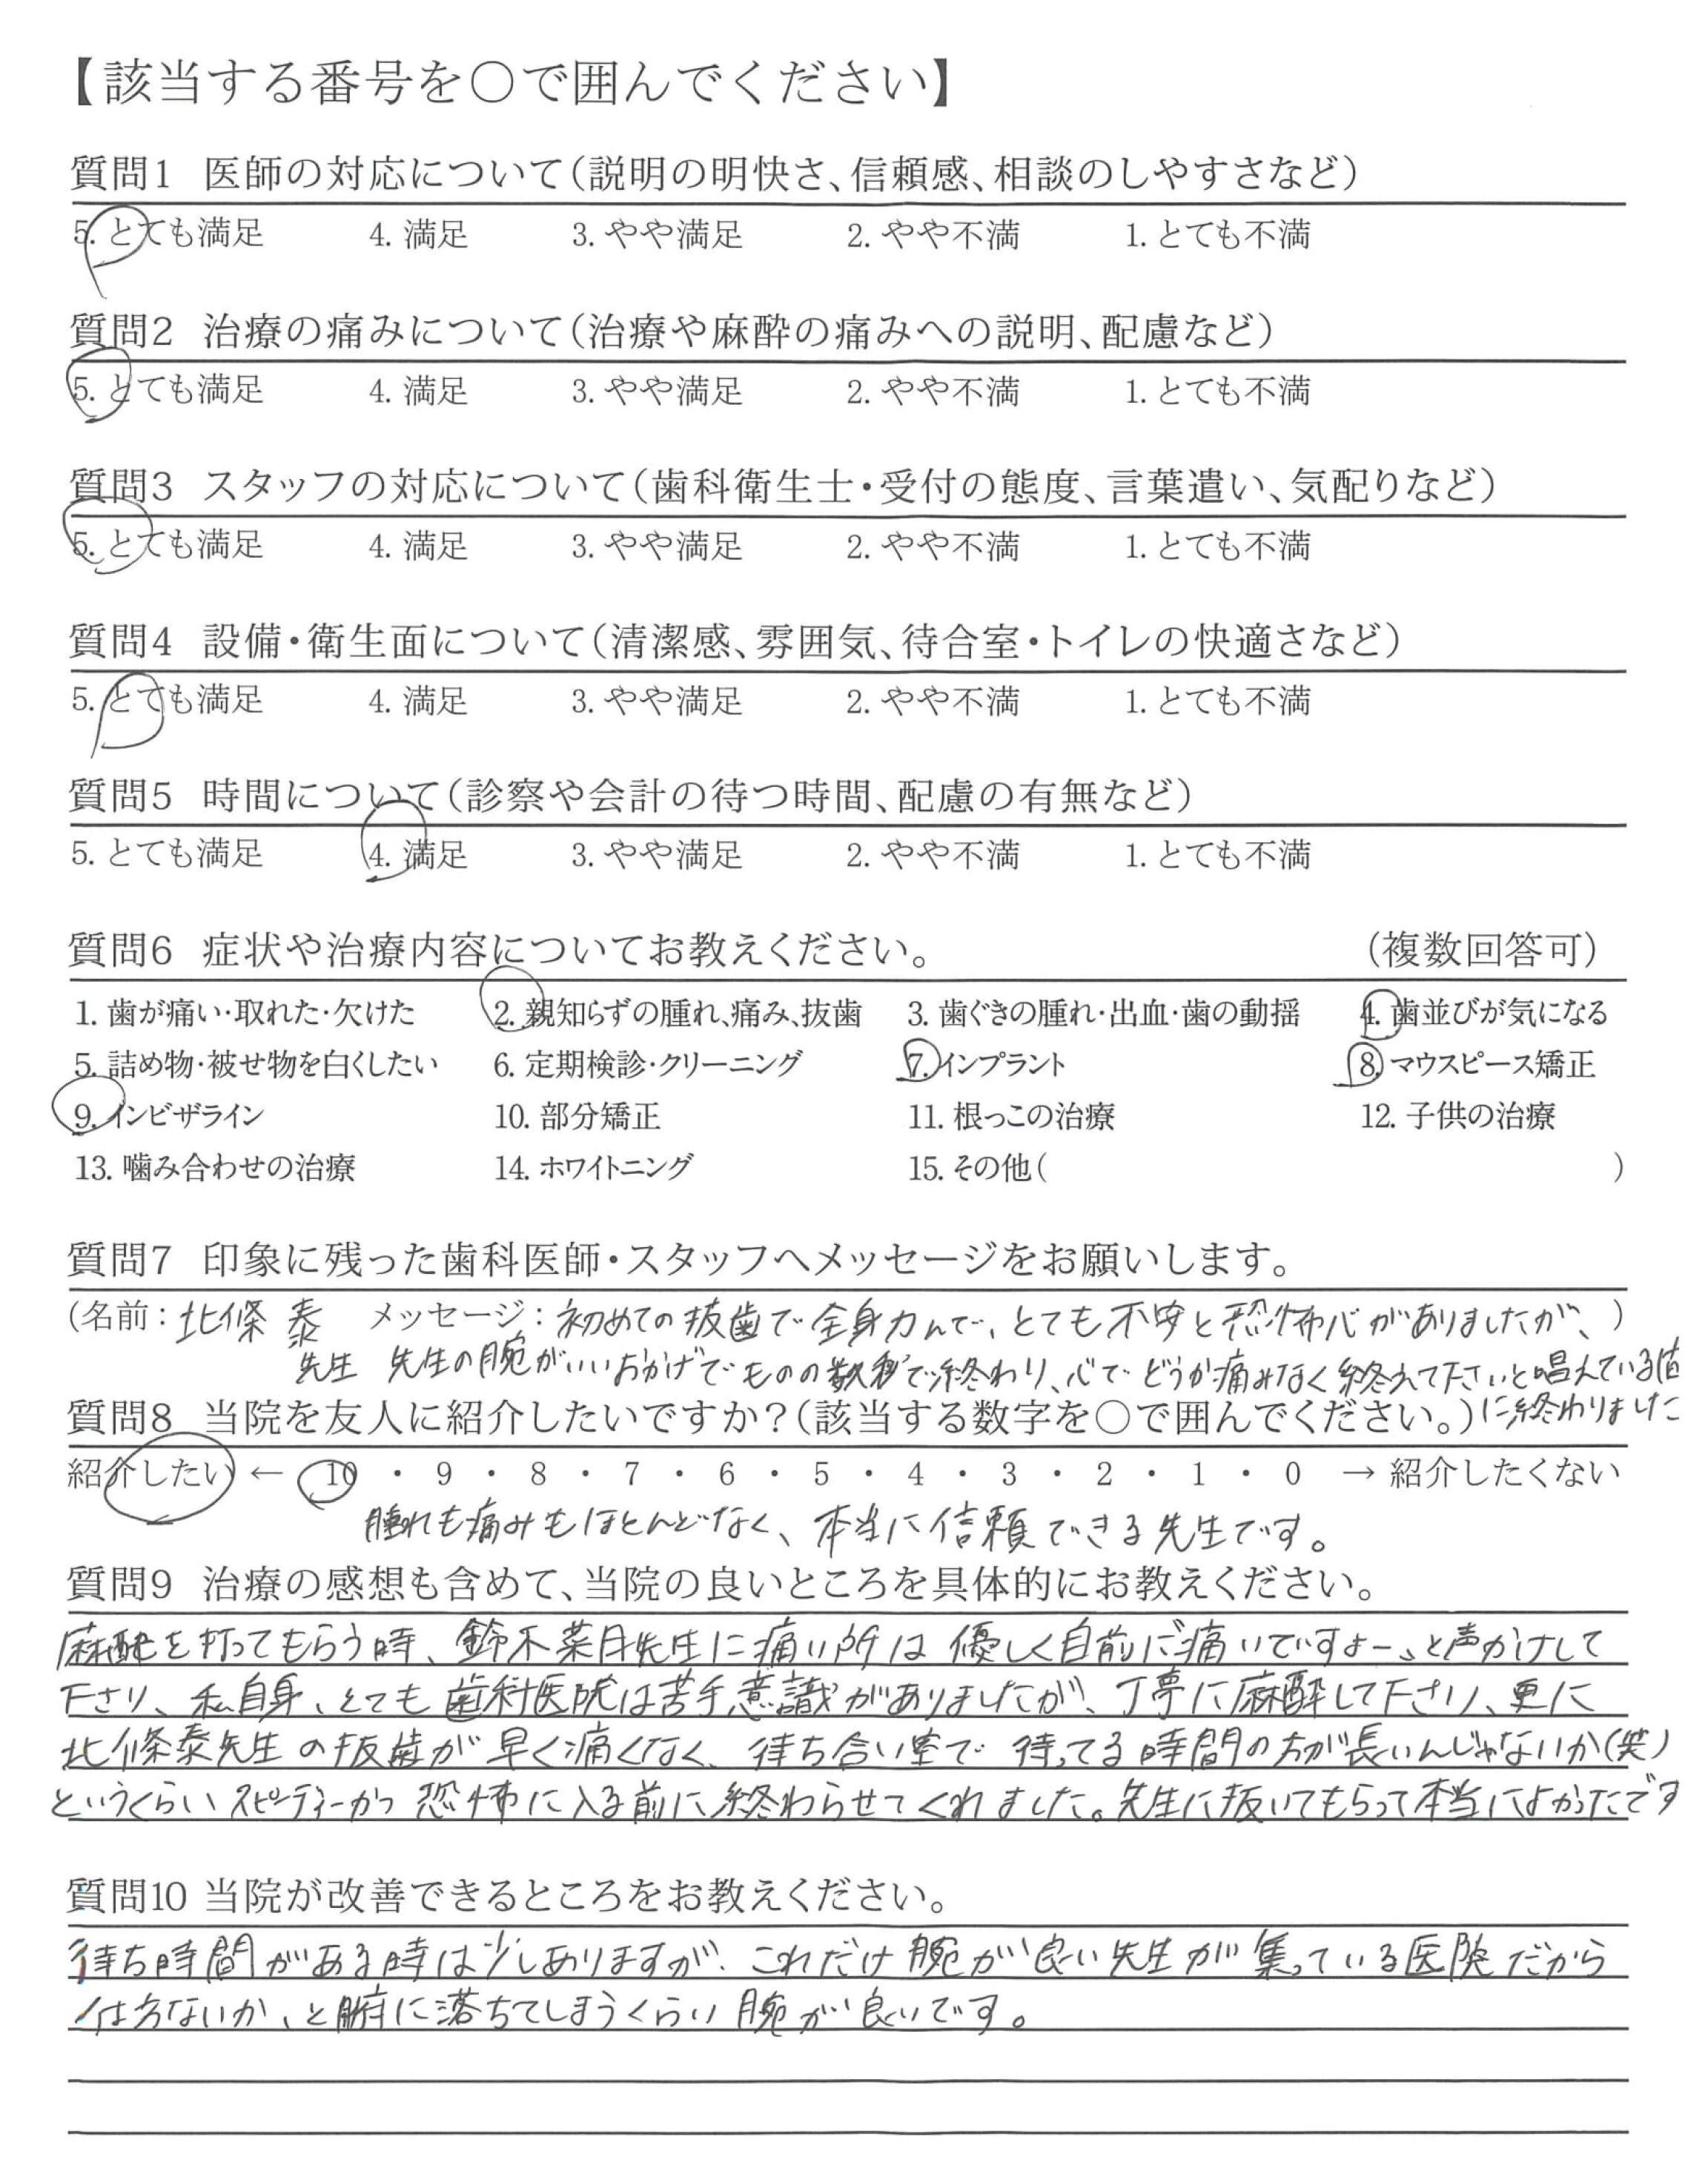 【該当する番号を○で囲んでください】
質問1 医師の対応について(説明の明快さ、信頼感、相談のしやすさなど)
5. とても満足 4. 満足 3. やや満足 2. やや不満 1. とても不満
質問2 治療の痛みについて(治療や麻酔の痛みへの説明、配慮など)
5. とても満足 4. 満足 3. やや満足 2. やや不満 1. とても不満
質問3 スタッフの対応について(歯科衛生士・受付の態度、言葉遣い、気配りなど)
5. とても満足 4. 満足 3. やや満足 2. やや不満 1. とても不満
質問4 設備・衛生面について(清潔感、雰囲気、待合室・トイレの快適さなど)
5. とても満足 4. 満足 3. やや満足 2. やや不満 1. とても不満
質問5 時間について(診察や会計の待つ時間、配慮の有無など)
5. とても満足 4. 満足 3. やや満足 2. やや不満 1. とても不満
質問6 症状や治療内容についてお教えください。 (複数回答可)
1. 歯が痛い・取れた・欠けた 2. 親知らずの腫れ、痛み、抜歯 3. 歯ぐきの腫れ・出血・歯の動揺 4. 歯並びが気になる
5. 詰め物・被せ物を白くしたい 6. 定期検診・クリーニング 7. インプラント 8. マウスピース矯正
9. インビザライン 10. 部分矯正 11. 根っこの治療 12. 子供の治療
13. 噛み合わせの治療 14. ホワイトニング 15. その他( )
質問7 印象に残った歯科医師・スタッフへメッセージをお願いします。
(名前：北條 泰 メッセージ：初めての抜歯で全身力んで、とても不安と恐怖心がありましたが、)
先生 先生の腕がいいおかげでものの数秒で終わり、心でどうか痛みなく終えて下さいと唱えている値
質問8 当院を友人に紹介したいですか？(該当する数字を○で囲んでください。)に終わりました
紹介したい ← 10 ・ 9 ・ 8 ・ 7 ・ 6 ・ 5 ・ 4 ・ 3 ・ 2 ・ 1 ・ 0 → 紹介したくない
腫れも痛みもほとんどなく、本当に信頼できる先生です。
質問9 治療の感想も含めて、当院の良いところを具体的にお教えください。
麻酔を打ってもらう時、鈴木菜月先生に痛い所は優しく自前に痛いですよー、と声かけして
下さり、私自身、とても歯科医院は苦手意識がありましたが、丁寧に麻酔して下さり、更に
北條泰先生の抜歯が早く痛くなく、待ち合い室で待ってる時間の方が長いんじゃないか(笑)
というくらいスピーディーかつ恐怖に入る前に終わらせてくれました。先生に抜いてもらって本当によかったです
質問10 当院が改善できるところをお教えください。
待ち時間がある時は少しありますが、これだけ腕が良い先生が集っている医院だから
仕方ないか、と腑に落ちてしまうくらい腕が良いです。